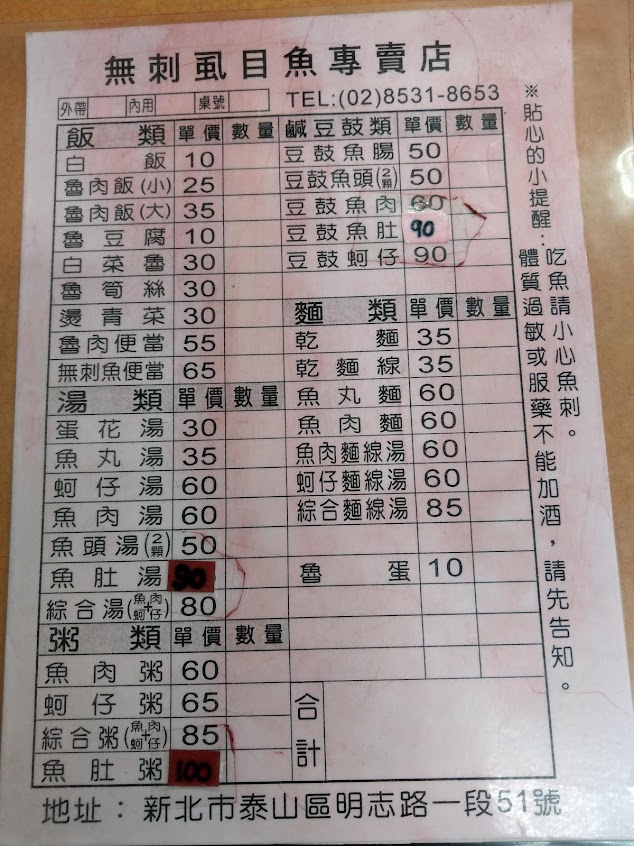 無刺虱目魚專賣店
外帶 內用 桌號 TEL:(02)8531-8653
飯類 單價 數量
白飯 10
魯肉飯(小) 25
魯肉飯(大) 35
魯豆腐 10
白菜魯 30
魯筍絲 30
燙青菜 30
魯肉便當 55
無刺魚便當 65
湯類 單價 數量
蛋花湯 30
魚丸湯 35
蚵仔湯 60
魚肉湯 60
魚頭湯(2顆) 50
魚肚湯 90
綜合湯(魚肉+蚵仔) 80
粥類 單價 數量
魚肉粥 60
蚵仔粥 65
綜合粥(魚肉+蚵仔) 85
魚肚粥 100
鹹豆鼓類 單價 數量
豆鼓魚腸 50
豆鼓魚頭(2顆) 50
豆鼓魚肉 60
豆鼓魚肚 90
豆鼓蚵仔 90
麵類 單價 數量
乾麵 35
乾麵線 35
魚丸麵 60
魚肉麵 60
魚肉麵線湯 60
蚵仔麵線湯 60
綜合麵線湯 85
魯蛋 10
合計
※貼心的小提醒:吃魚請小心魚刺。
體質過敏或服藥不能加酒,請先告知。
地址:新北市泰山區明志路一段51號